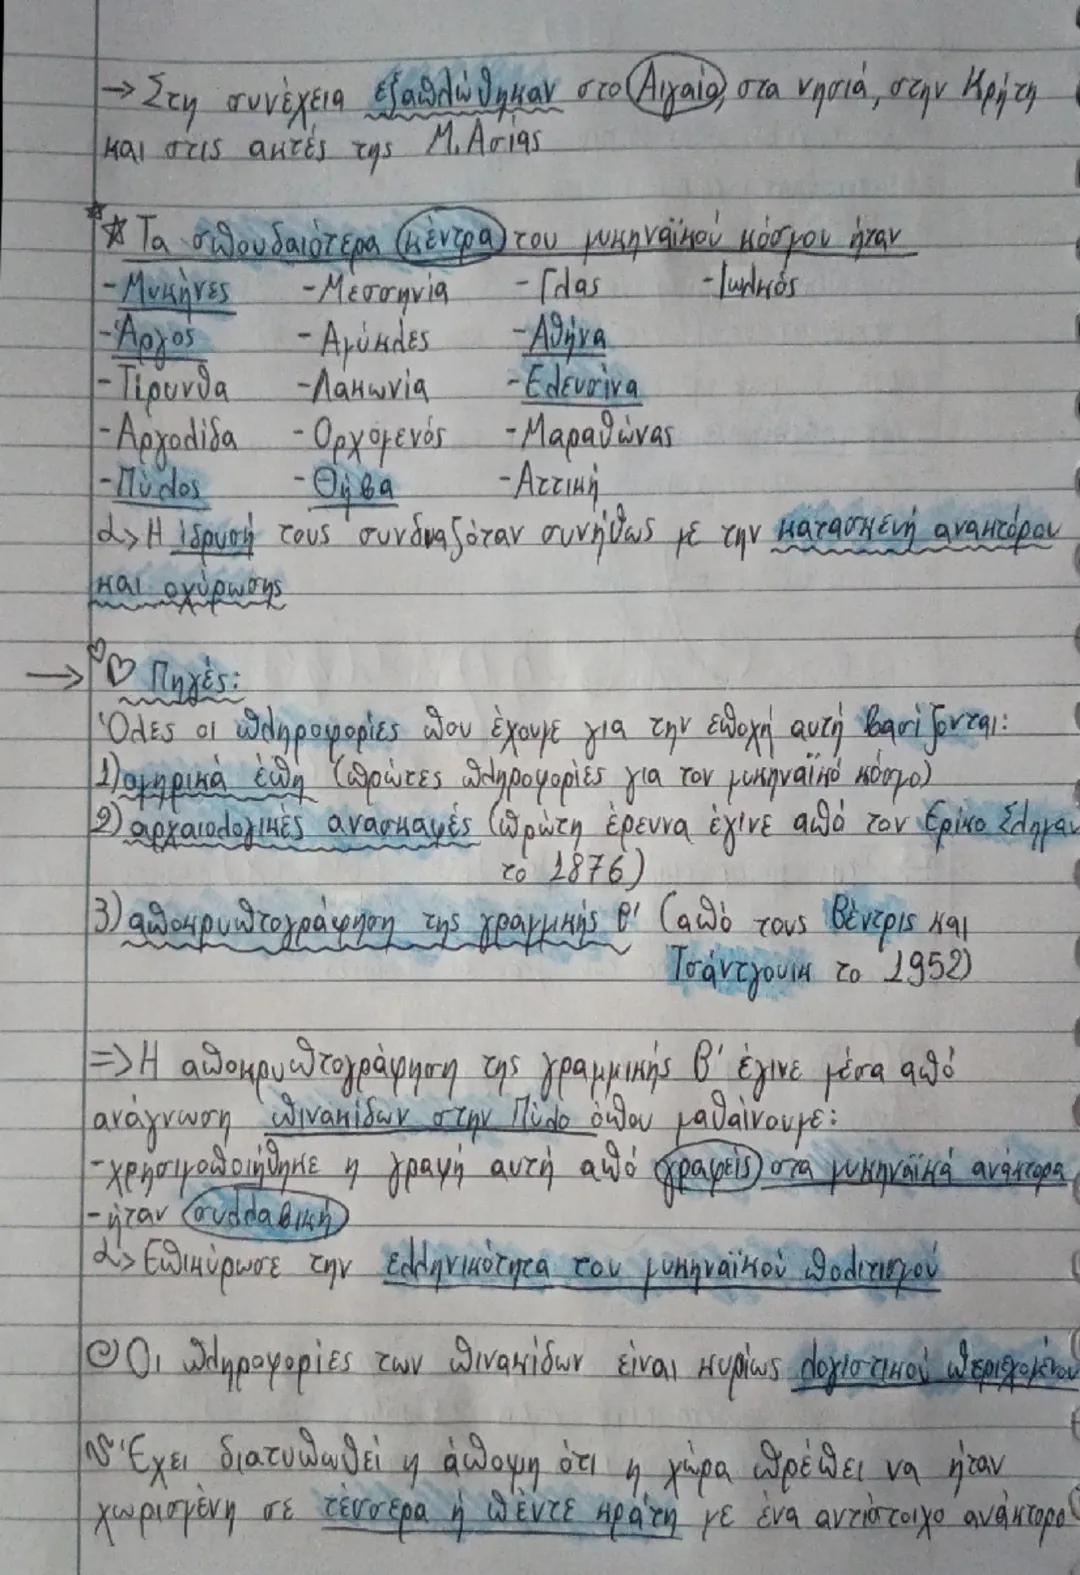 → Στη συνέχεια εξαπλώθηκαν στο Αιγαίο, στα νησιά, στην Κρήτη
και στις ακτές της Μ. Ασίας
☆ Τα σπουδαιότερα κέντρα του μυκηναϊκού κόσμου ήταν
- Μυκήνες - Μεσσηνία - Γλας - Ιωλκός
- Άργος - Αμύκλες - Αθήνα
- Τίρυνθα - Λακωνία - Ελευσίνα
- Αργολίδα - Ορχομενός - Μαραθώνας
- Πύλος - Θήβα - Αττική
↳ Η ίδρυσή τους συνδυαζόταν συνήθως με την κατασκευή ανακτόρου
και οχύρωσης
→ ♡♡ Πηγές:
Όλες οι πληροφορίες που έχουμε για την εποχή αυτή βασίζονται:
1) ομηρικά έπη (πρώτες πληροφορίες για τον μυκηναϊκό κόσμο)
2) αρχαιολογικές ανασκαφές (πρώτη έρευνα έγινε από τον Ερίκο Σλήμαν
το 1876)
3) αποκρυπτογράφηση της γραμμικής Β' (από τους Βέντρις και
Τσάντγουικ το 1952)
=> Η αποκρυπτογράφηση της γραμμικής Β' έγινε μέσα από
ανάγνωση πινακίδων στην Πύλο όπου μαθαίνουμε:
- χρησιμοποιήθηκε η γραφή αυτή από γραφείς στα μυκηναϊκά ανάκτορα
- ήταν συλλαβική
↳ Επικύρωσε την ελληνικότητα του μυκηναϊκού πολιτισμού
Οι πληροφορίες των πινακίδων είναι κυρίως λογιστικού περιεχομένου
Έχει διατυπωθεί η άποψη ότι η χώρα πρέπει να ήταν
χωρισμένη σε τέσσερα ή πέντε κράτη με ένα αντίστοιχο ανάκτορο